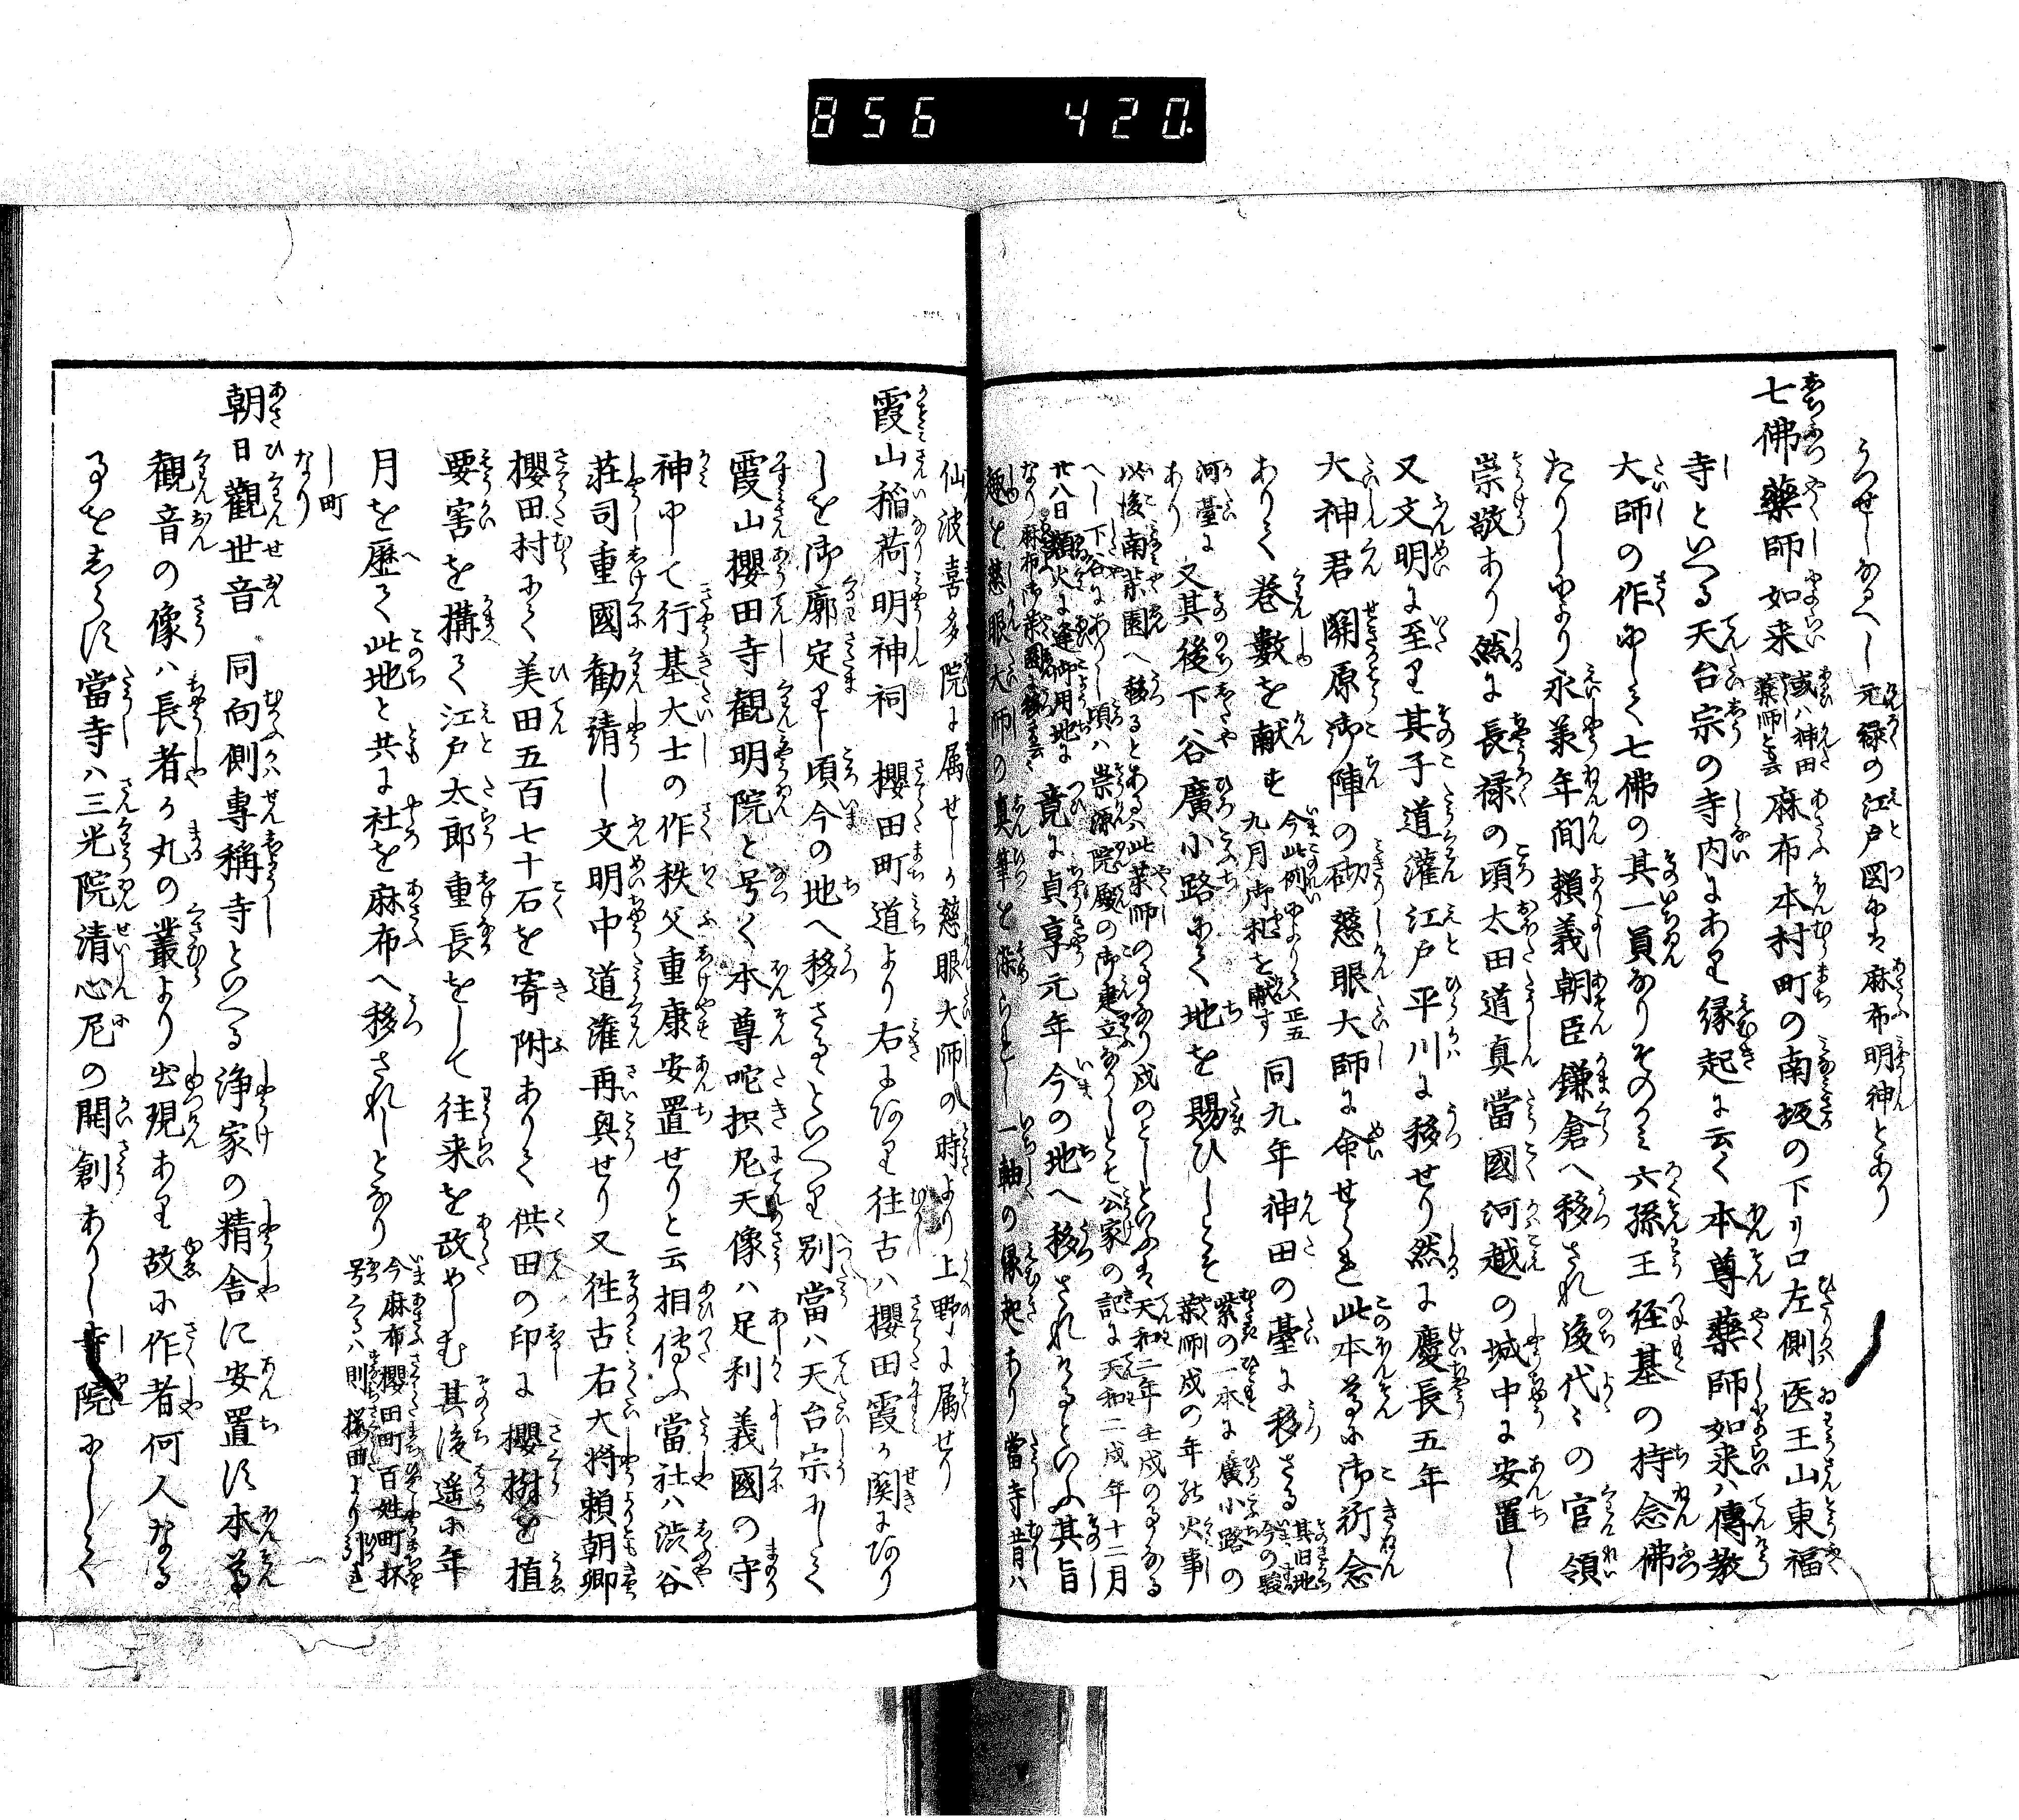 856 420.
うつせしなるへし元禄の江戸図には麻布明神とあり
七佛藥師如来 或ハ神田藥師と云 麻布本村町の南坂の下り口左側医王山東福
寺といへる天台宗の寺内にあり縁起に云く本尊藥師如来ハ傳教
大師の作にして七佛の其一員なりそのかみ六孫王経基の持念佛
たりしにより永承年間頼義朝臣鎌倉へ移され後代々の官領
崇敬あり然に長禄の頃太田道真當國河越の城中に安置し
又文明に至り其子道灌江戸平川に移せり然に慶長五年
大神君関原御陣の砌慈眼大師に命せられ此本尊に御祈念
ありて巻數を献す 今此例によりて正五九月御札を献す 同九年神田の臺に移さる 其旧地今の駿
河臺にあり 又其後下谷廣小路にて地を賜ひしとそ 紫の一本に廣小路の薬師戌の年の火事
以後南薬園へ移るとあるハ此薬師の事なり戌のとしといふは天和二年壬戌の事なる
へし下谷にありし頃ハ崇源院殿の御建立なりしとも公家の記に天和二戌年十二月
廿八日類火に逢御用地に
なり麻布御薬園に移ると云々 竟に貞享元年今の地へ移されけるといふ其旨
趣を慈眼大師の真筆を染られし一軸の縁起あり當寺昔ハ
仙波喜多院に属せしか慈眼大師の時より上野に属せり
霞山稲荷明神祠 櫻田町道より右にあり往古ハ櫻田霞か関にあり
しを御廓定りし頃今の地へ移さるといへり別當ハ天台宗にして
霞山櫻田寺観明院と号く本尊咜枳尼天像ハ足利義國の守
神にして行基大士の作秩父重康安置せりと云相傳ふ當社ハ渋谷
荘司重國勧請し文明中道潅再興せり又往古右大将頼朝卿
櫻田村にて美田五百七十石を寄附ありて供田の印に櫻樹を植
要害を構て江戸太郎重長をして往来を改めしむ其後遥に年
月を歴て此地と共に社を麻布へ移されしとなり 今麻布櫻田町百姓町抔号るハ則櫻田より引れ
し町なり
朝日觀世音 同向側専稱寺といへる浄家の精舎に安置す本尊
観音の像ハ長者か丸の叢より出現あり故に作者何人なる
事をしらす當寺ハ三光院清心尼の開創ありし寺院にして